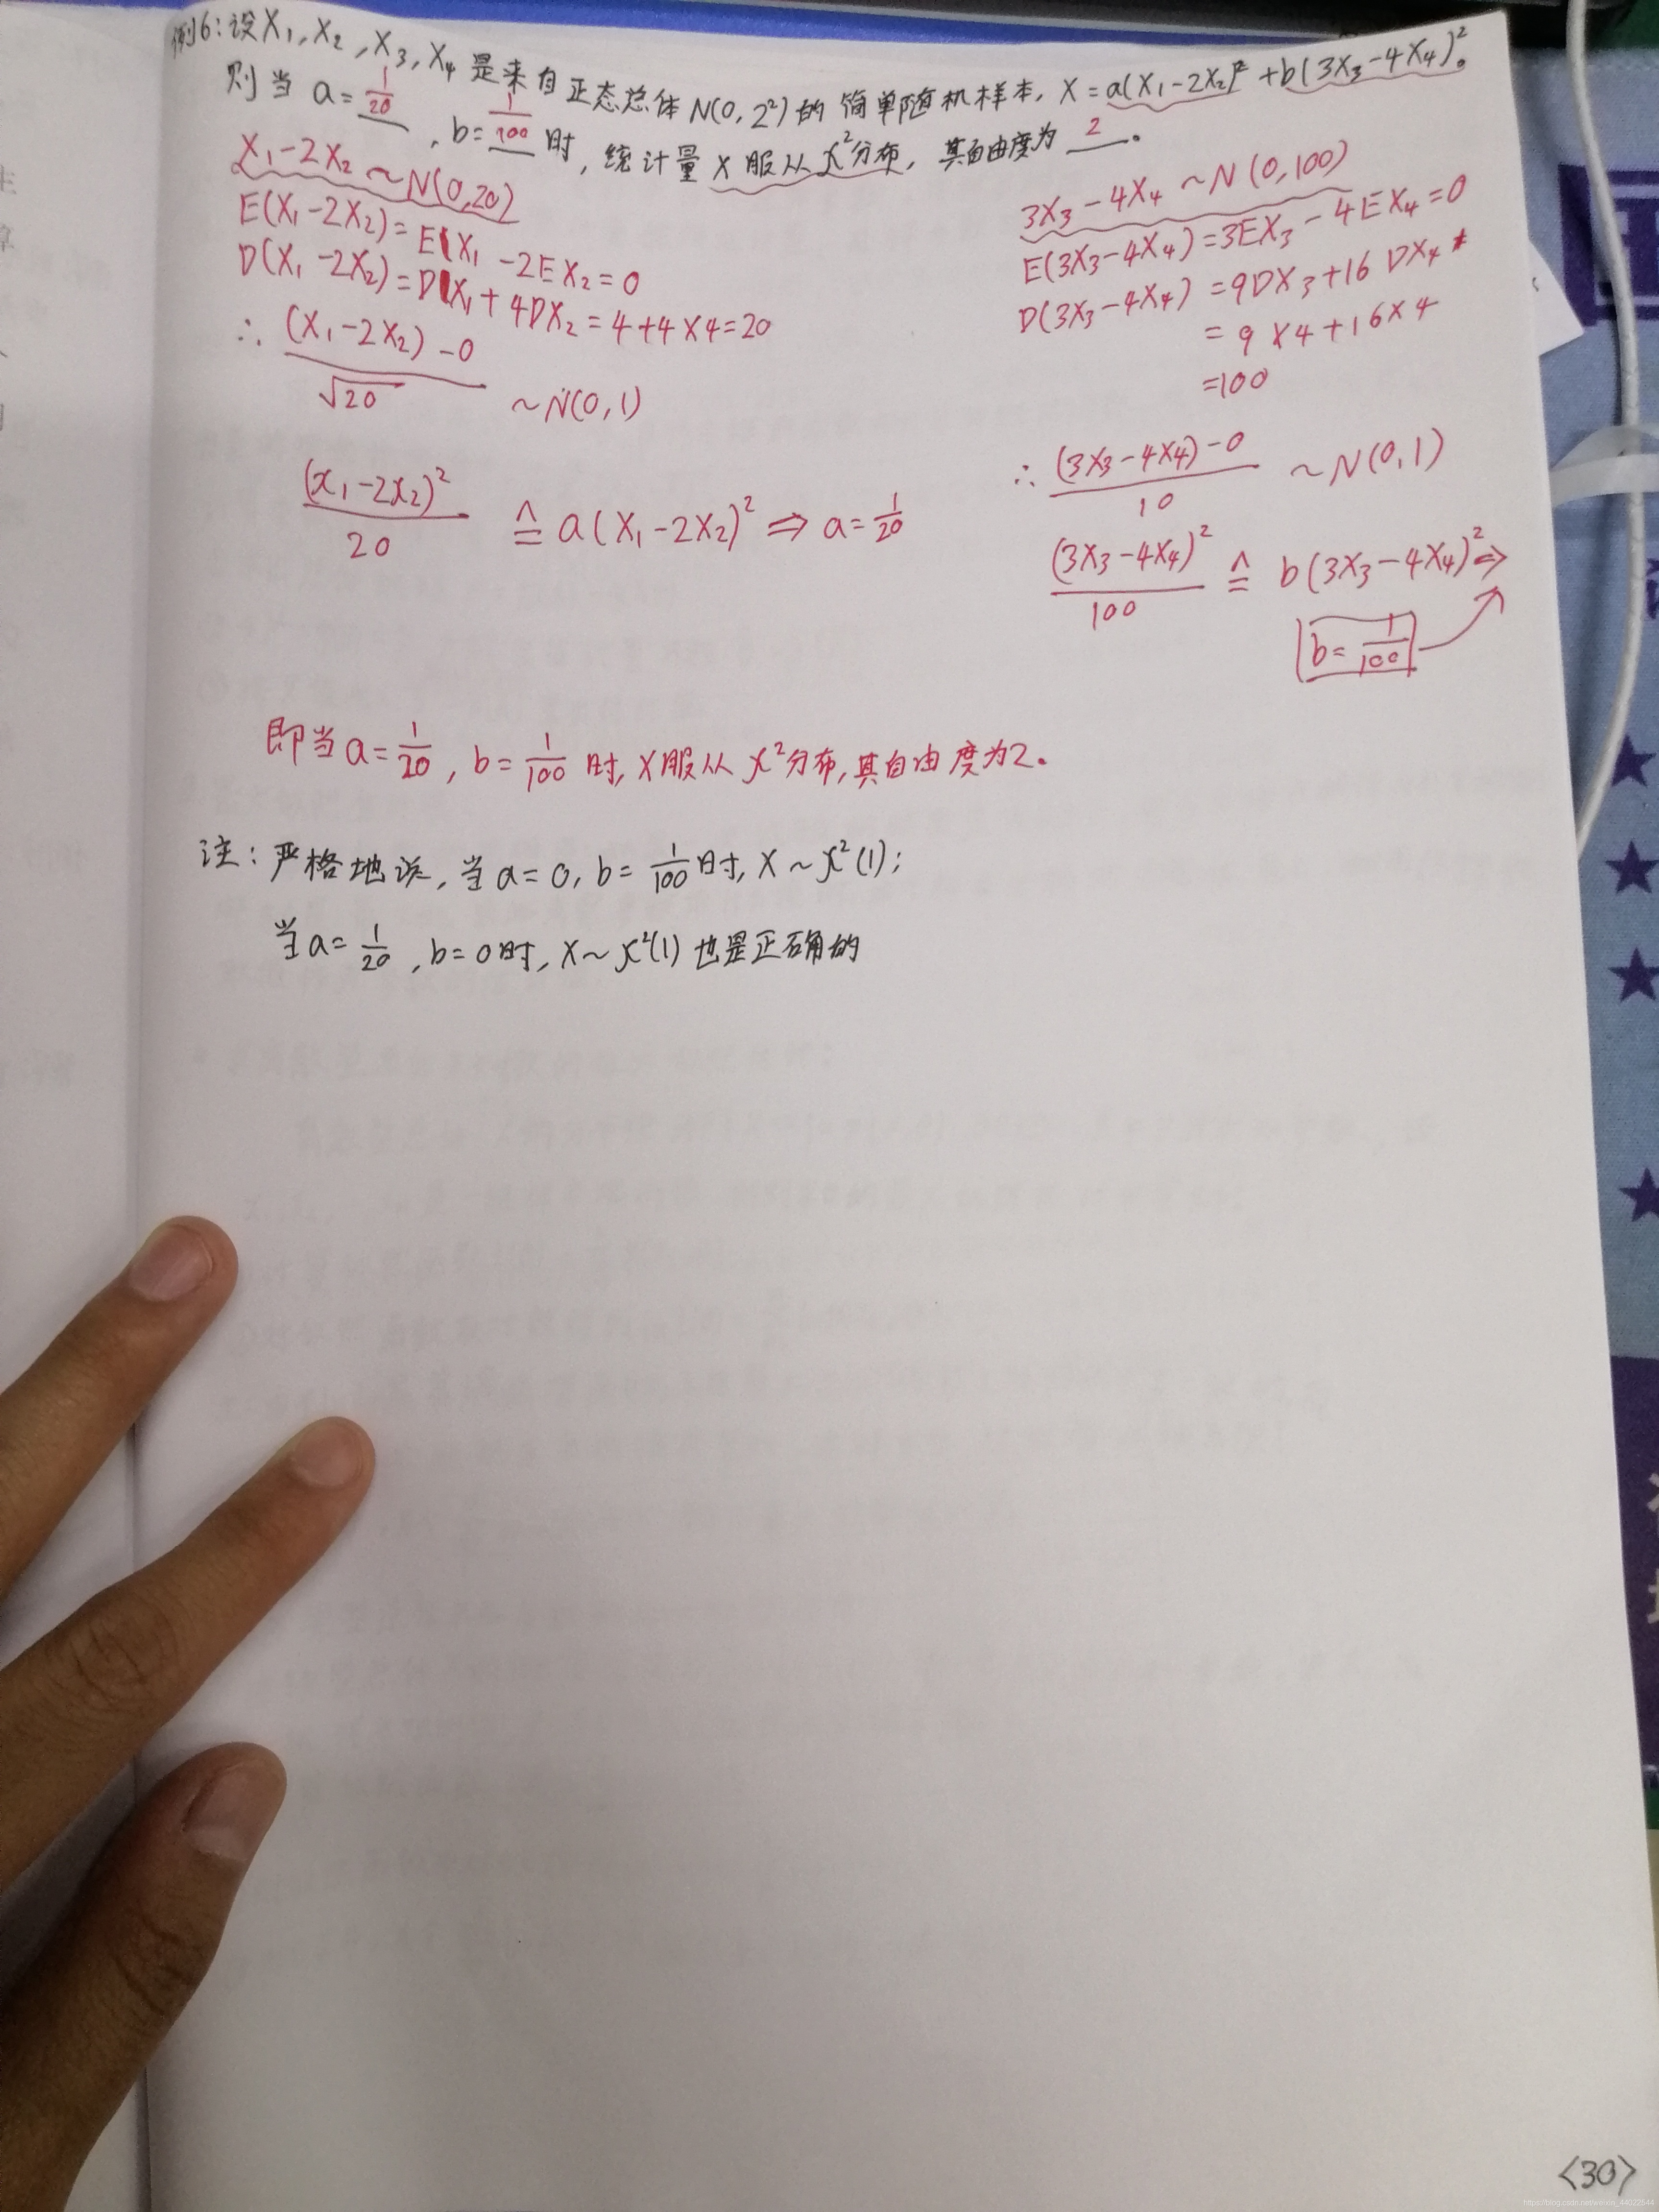 例6:设X₁,X₂,X₃,X₄是来自正态总体N(0,2²)的简单随机样本,X=a(X₁-2X₂)²+b(3X₃-4X₄)²。
则当a=1/20,b=1/100时,统计量X服从χ²分布,其自由度为2。
X₁-2X₂~N(0,20)
E(X₁-2X₂)=EX₁-2EX₂=0
D(X₁-2X₂)=DX₁+4DX₂=4+4×4=20
∴ (X₁-2X₂)-0/√20 ~N(0,1)
(X₁-2X₂)²/20 ≙ a(X₁-2X₂)² ⇒ a=1/20
3X₃-4X₄~N(0,100)
E(3X₃-4X₄)=3EX₃-4EX₄=0
D(3X₃-4X₄)=9DX₃+16DX₄
=9×4+16×4
=100
∴ (3X₃-4X₄)-0/10 ~N(0,1)
(3X₃-4X₄)²/100 ≙ b(3X₃-4X₄)² ⇒
b=1/100
即当a=1/20,b=1/100时,X服从χ²分布,其自由度为2。
注:严格地说,当a=0,b=1/100时,X~χ²(1);
当a=1/20,b=0时,X~χ²(1)也是正确的
<30>